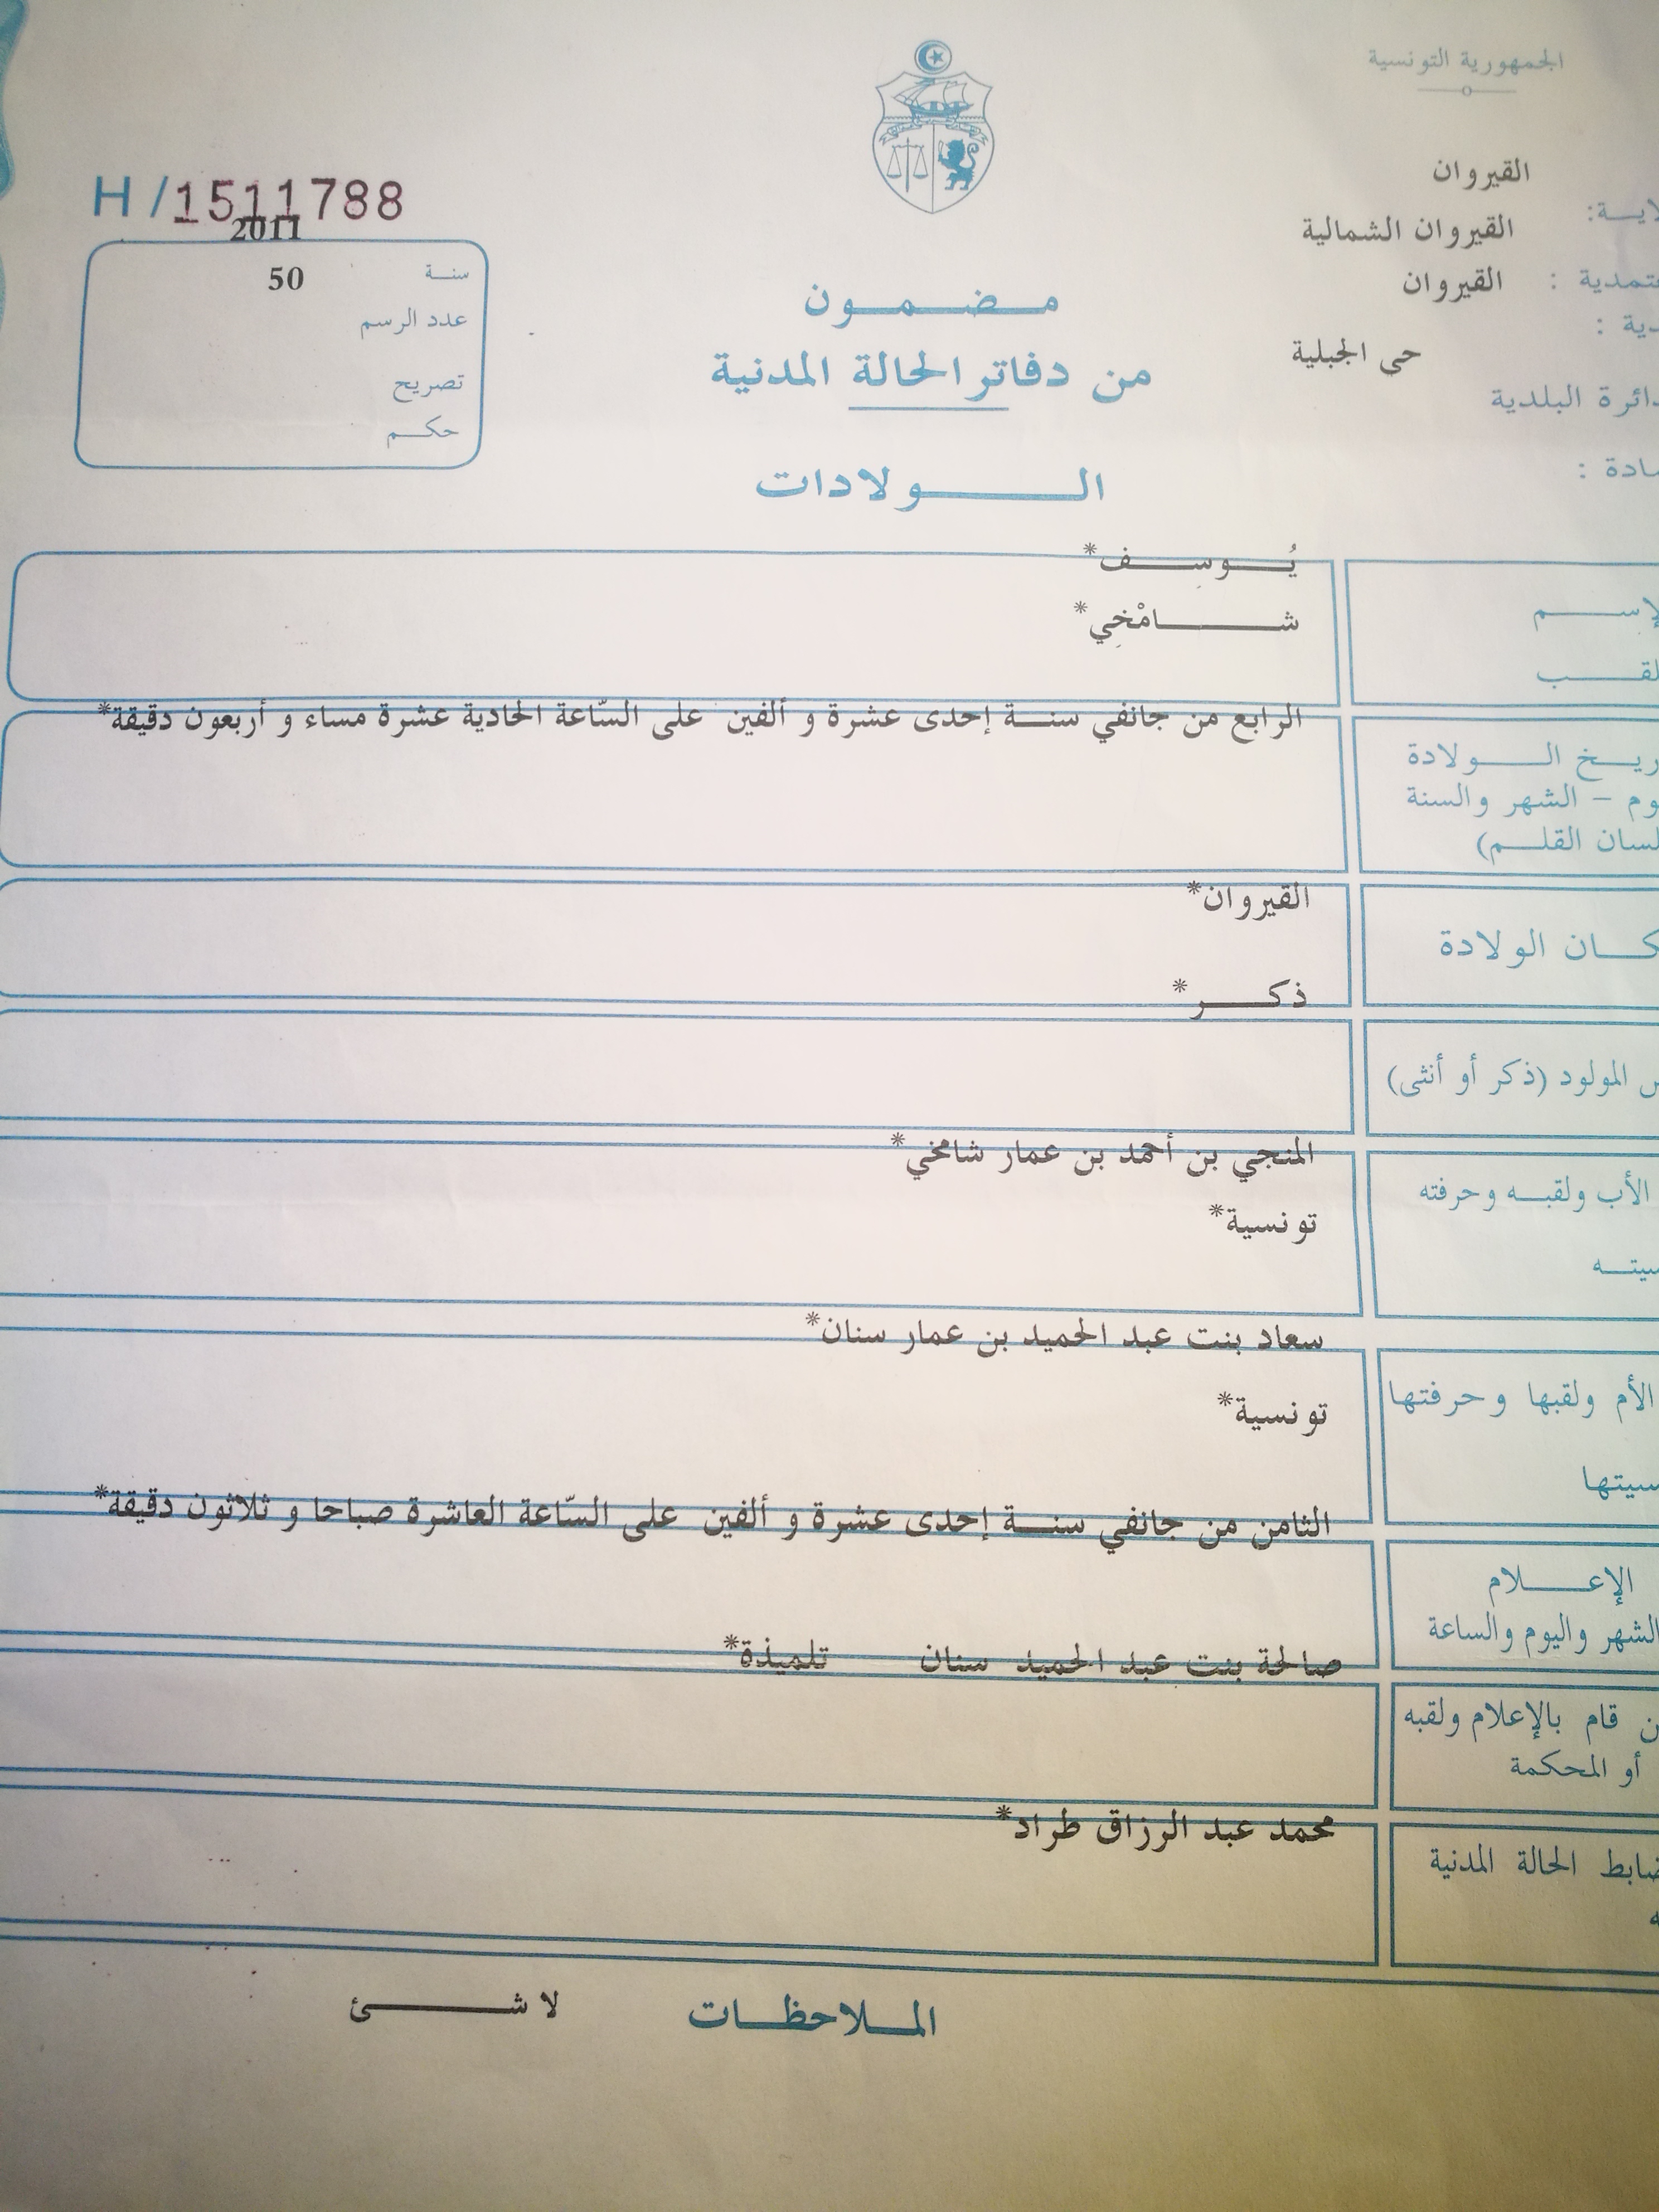 الجمهورية التونسية
القيروان
القيروان الشمالية
القيروان
حى الجبلية
البلدية
H/1511788
2011
سنة 50
عدد الرسم
تصريح
حكم
مضمون
من دفاتر الحالة المدنية
الولادات
يُوسِف*
شامْخِي*
الرابع من جانفي سنة إحدى عشرة و ألفين على السّاعة الحادية عشرة مساء و أربعون دقيقة*
الولادة
– الشهر والسنة
القلم)
القيروان*
الولادة
ذكر*
المولود (ذكر أو أنثى)
المنجي بن أحمد بن عمار شامخي*
الأب ولقبه وحرفته
تونسية*
سعاد بنت عبد الحميد بن عمار سنان*
الأم ولقبها وحرفتها
تونسية*
الثامن من جانفي سنة إحدى عشرة و ألفين على السّاعة العاشرة صباحا و ثلاثون دقيقة*
الإعلام
الشهر واليوم والساعة
صالحة بنت عبد الحميد سنان تلميذة*
قام بالإعلام ولقبه
أو المحكمة
محمد عبد الرزاق طراد*
الحالة المدنية
الملاحظات لا شئ